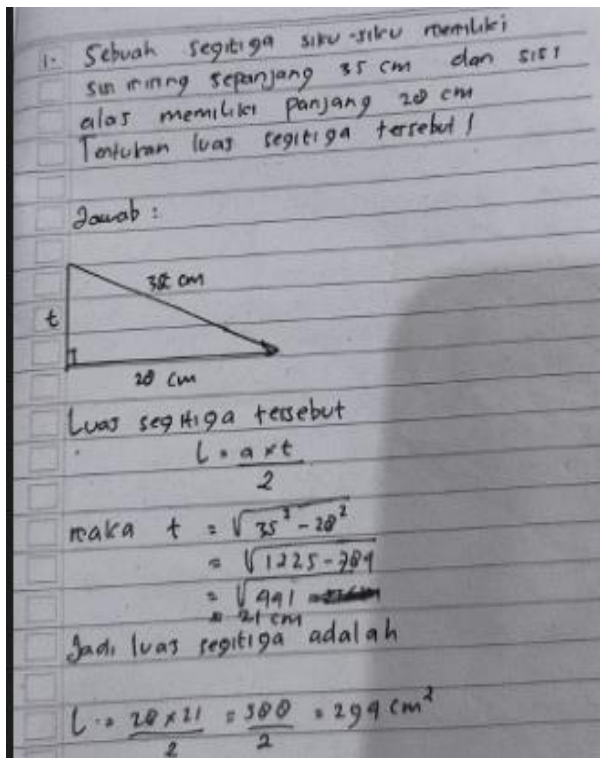 1. Sebuah segitiga siku-siku memiliki
sisi miring sepanjang 35 cm dan sisi
alas memiliki panjang 28 cm
Tentukan luas segitiga tersebut!
Jawab :
35 cm
t
28 cm
Luas segitiga tersebut
L = a x t
2
maka t = √35² - 28²
= √1225 - 784
= √441
= 21 cm
Jadi luas segitiga adalah
L = 28 x 21 = 588 = 294 cm²
2 2